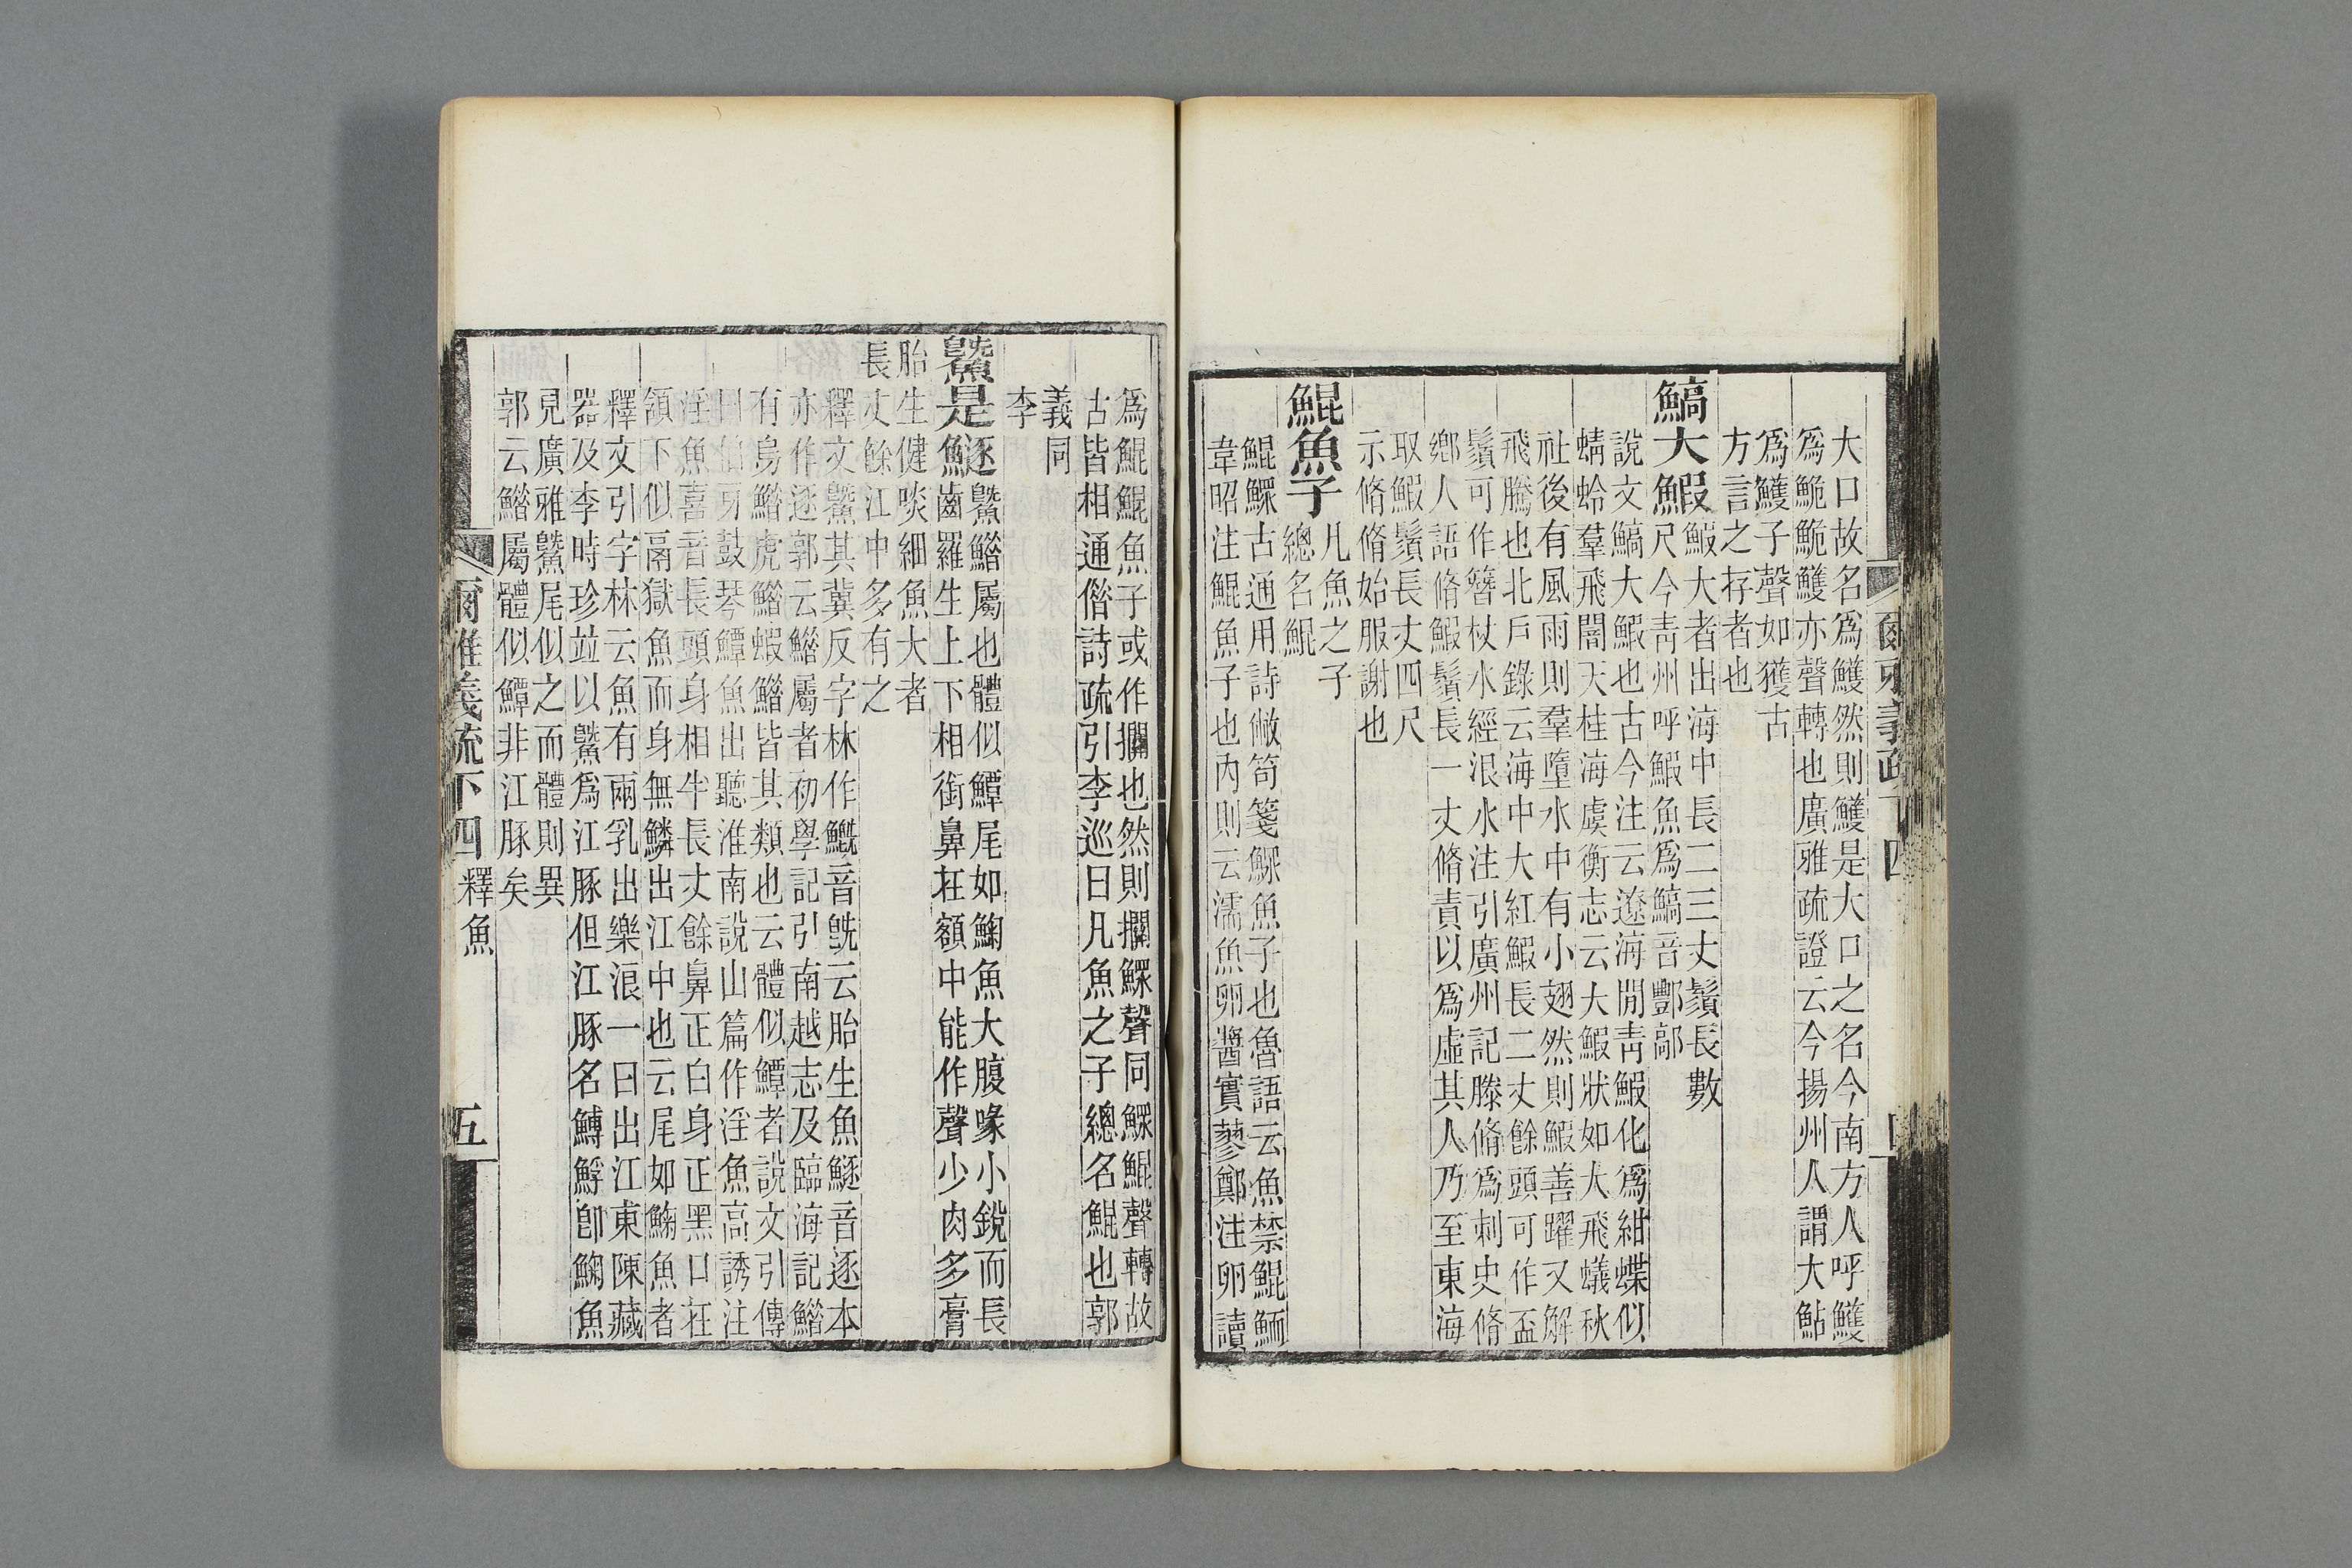 大口故名爲鱯然則鱯是大口之名今南方人呼鱯
爲鮠鮠鱯亦聲轉也廣雅疏證云今揚州人謂大鮎
爲鱯子聲如獲古
方言之存者也
鰝大鰕
鰕大者出海中長二三丈鬚長數
尺今靑州呼鰕魚爲鰝音酆鄗
說文鰝大鰕也古今注云遼海閒靑鰕化爲紺蝶似
蜻蛉羣飛闇天桂海虞衡志云大鰕狀如大飛蟻秋
社後有風雨則羣墮水中有小翅然則鰕善躍又解
飛騰也北戶錄云海中大紅鰕長二丈餘頭可作盃
鬚可作簪杖水經泿水注引廣州記滕脩爲刺史脩
鄉人語脩鰕鬚長一丈脩責以爲虛其人乃至東海
取鰕鬚長丈四尺
示脩脩始服謝也
鯤魚子
凡魚之子
總名鯤
鯤鰥古通用詩敝笱箋鰥魚子也魯語云魚禁鯤鮞
韋昭注鯤魚子也內則云濡魚卵醬實蓼鄭注卵讀
爾雅義疏下四 釋魚 五
爲鯤鯤魚子或作攔也然則攔鰥聲同鰥鯤聲轉故
古皆相通借詩疏引李巡曰凡魚之子總名鯤也郭
義同
李
鱀是鱁
鱀鱕屬也體似鱏尾如䱡魚大腹喙小銳而長
齒羅生上下相銜鼻在額中能作聲少肉多膏
胎生健啖細魚大者
長丈餘江中多有之
釋文鱀其冀反字林作鱀音旣云胎生魚鱁音逐本
亦作逐郭云䱜屬者初學記引南越志及臨海記䱜
有烏䱜虎䱜蝦䱜皆其類也云體似鱏者說文引傳
曰伯牙鼓琴鱏魚出聽淮南說山篇作淫魚高誘注
淫魚喜音長頭身相半長丈餘鼻正白身正黑口在
頷下似鬲獄魚而身無鱗出江中也云尾如䱡魚者
釋文引字林云魚有兩乳出樂浪一曰出江東陳藏
器及李時珍竝以鱀爲江豚但江豚名䱐䱐卽䱡魚
見廣雅鱀尾似之而體則異
郭云䱜屬體似鱏非江豚矣